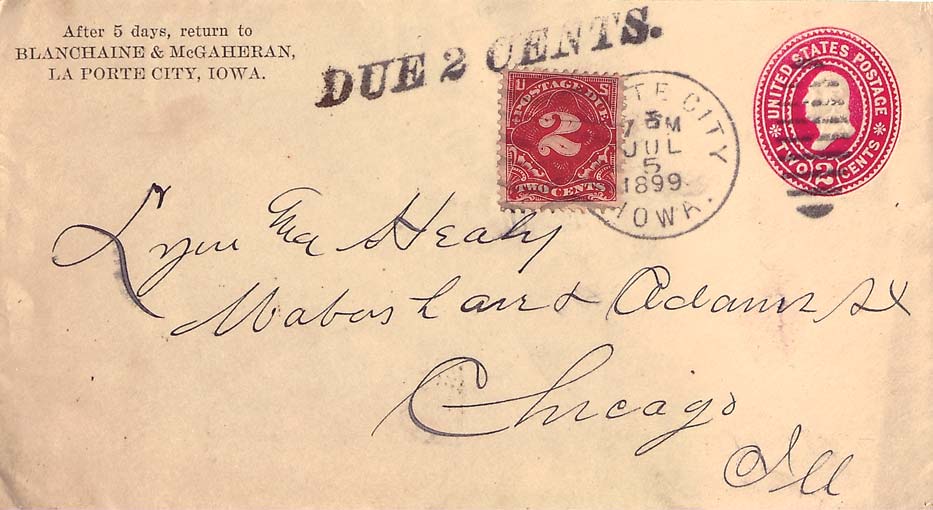 After 5 days, return to
BLANCHAINE & McGAHERAN,
LA PORTE CITY, IOWA.
DUE 2 CENTS.
U S
POSTAGE DUE
2
TWO CENTS
TE CITY
7 PM
JUL
5
1899
IOWA.
UNITED STATES POSTAGE
TWO 2 CENTS
Lyon Mc Healy
Wabash and Adams St
Chicago
Ill